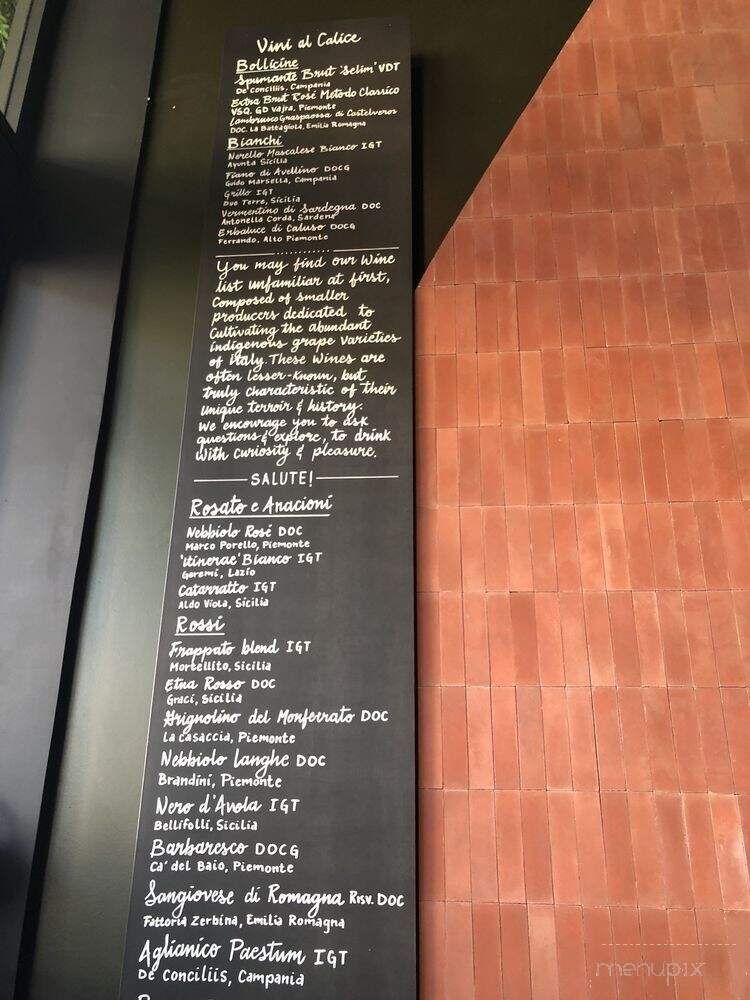 Vini al Calice
Bollicine
Spumante Brut 'Selim' VDT
De Conciliis, Campania
Extra Brut Rosé Metodo Classico
VSQ. GD Vajra, Piemonte
Lambrusco Grasparossa di Castelvetro
DOC. La Battagiola, Emilia Romagna
Bianchi
Nerello Mascalese Bianco IGT
Ayunta Sicilia
Fiano di Avellino DOCG
Guido Marsella, Campania
Grillo IGT
Due Terre, Sicilia
Vermentino di Sardegna DOC
Antonella Corda, Sardena
Erbaluce di Caluso DOCG
Ferrando, Alto Piemonte
You may find our wine
list unfamiliar at first,
Composed of smaller
producers dedicated to
Cultivating the abundant
indigenous grape varieties
of Italy. These wines are
often lesser-known, but
truly characteristic of their
unique terroir & history.
We encourage you to ask
questions & explore, to drink
with curiosity & pleasure.
SALUTE!
Rosato e Aracioni
Nebbiolo Rosé DOC
Marco Porello, Piemonte
'Itinerae' Bianco IGT
Geremi, Lazio
Catarratto IGT
Aldo Viola, Sicilia
Rossi
Frappato blend IGT
Mortellito, Sicilia
Etna Rosso DOC
Graci, Sicilia
Grignolino del Monferrato DOC
La Casaccia, Piemonte
Nebbiolo Langhe DOC
Brandini, Piemonte
Nero d'Avola IGT
Bellifolli, Sicilia
Barbaresco DOCG
Ca' del Baio, Piemonte
Sangiovese di Romagna Risv. DOC
Fattoria Zerbina, Emilia Romagna
Aglianico Paestum IGT
De Conciliis, Campania
menupix